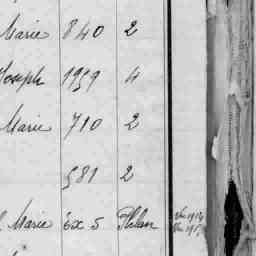 Marie 840 2
Joseph 1959 4
Marie 710 2
581 2
Marie 6x 5